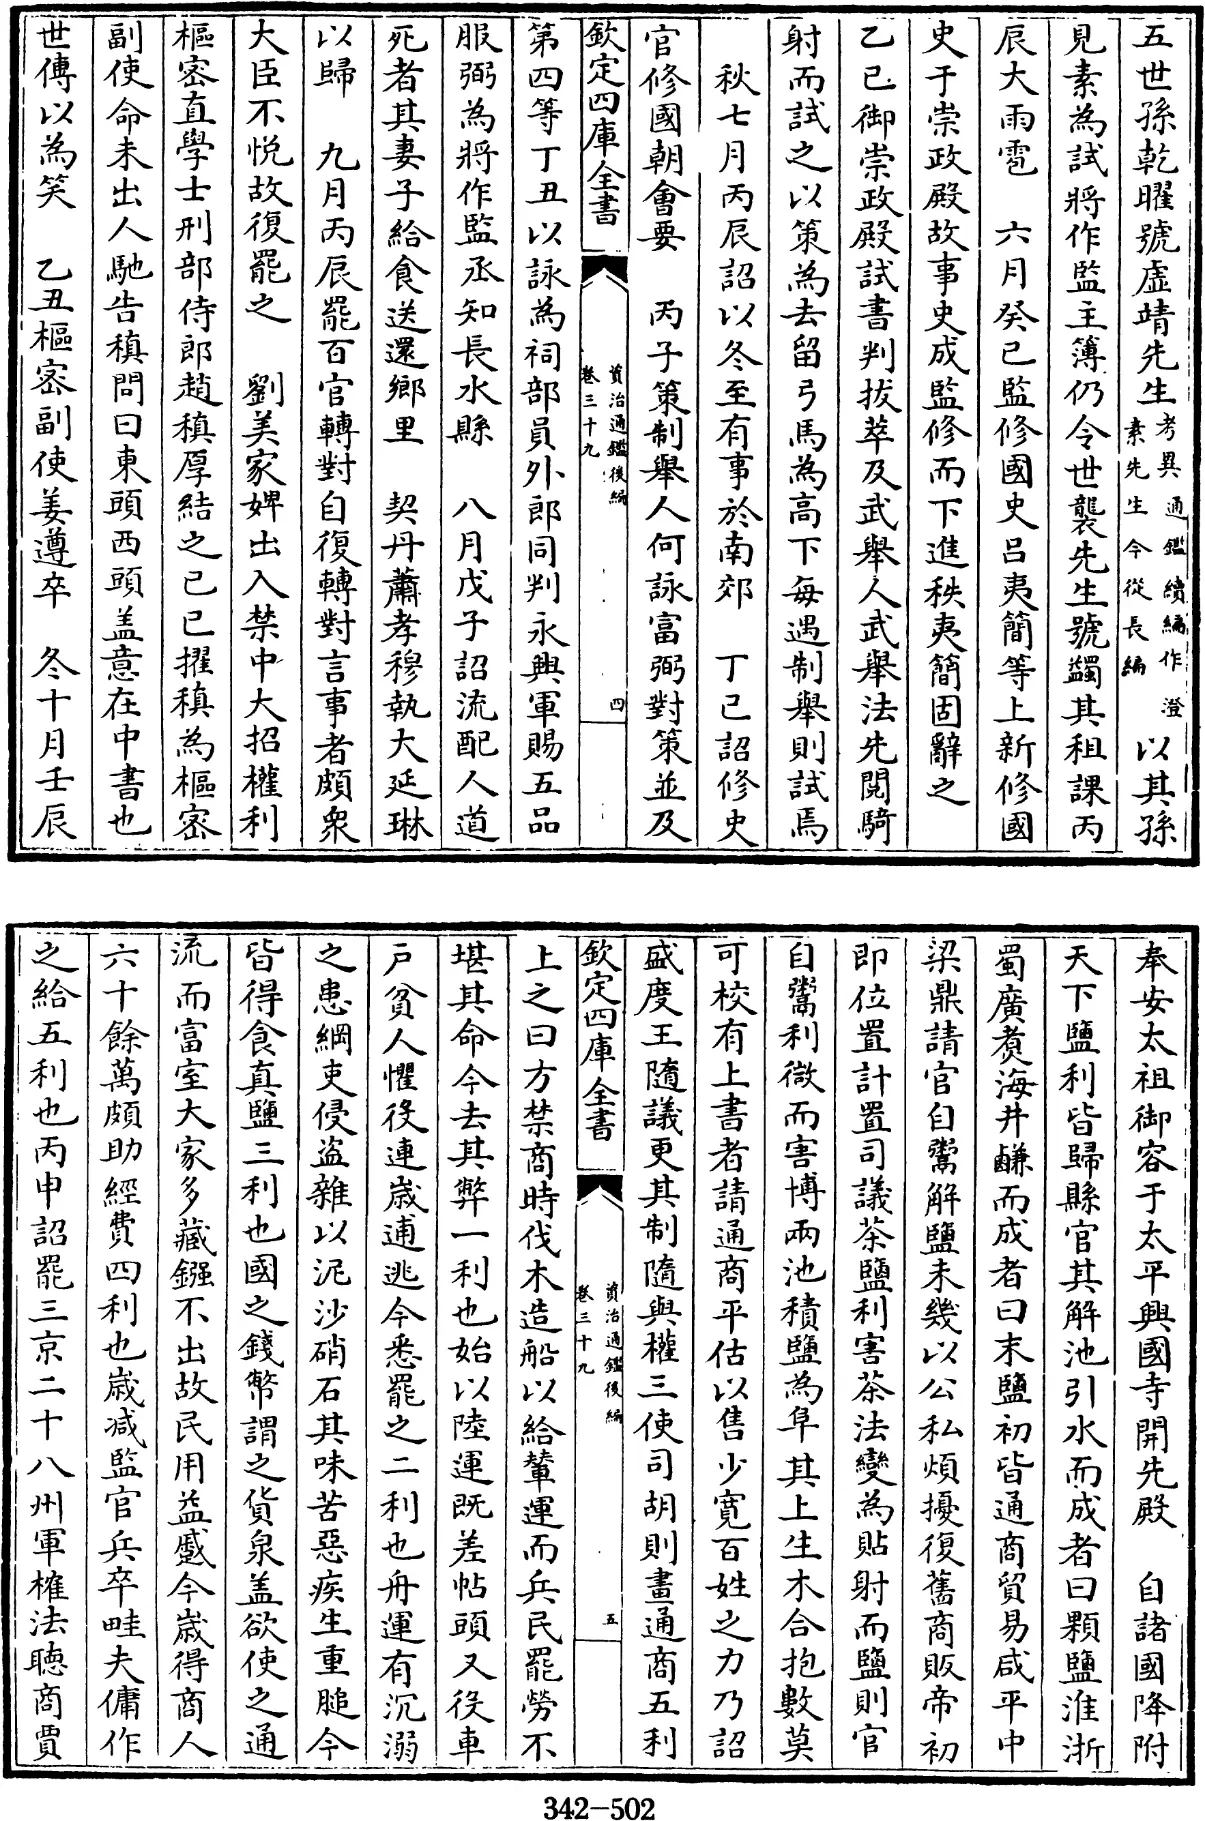 五世孫乾曜號虛靖先生考異通鑑續編作澄素先生今從長編以其孫
見素為試將作監主簿仍令世襲先生號蠲其租課丙
辰大雨雹　六月癸巳監修國史呂夷簡等上新修國
史于崇政殿故事史成監修而下進秩夷簡固辭之
乙巳御崇政殿試書判拔萃及武舉人武舉法先閱騎
射而試之以策為去留弓馬為高下每遇制舉則試焉
秋七月丙辰詔以冬至有事於南郊　丁巳詔修史
官修國朝會要　丙子策制舉人何詠富弼對策並及
欽定四庫全書
資治通鑑後編
卷三十九
四
第四等丁丑以詠為祠部員外郎同判永興軍賜五品
服弼為將作監丞知長水縣　八月戊子詔流配人道
死者其妻子給食送還鄉里　契丹蕭孝穆執大延琳
以歸　九月丙辰罷百官轉對自復轉對言事者頗衆
大臣不悅故復罷之　劉美家婢出入禁中大招權利
樞密直學士刑部侍郎趙稹厚結之己巳擢稹為樞密
副使命未出人馳告稹問曰東頭西頭盖意在中書也
世傳以為笑　乙丑樞密副使姜遵卒　冬十月壬辰
奉安太祖御容于太平興國寺開先殿　自諸國降附
天下鹽利皆歸縣官其解池引水而成者曰顆鹽淮浙
蜀廣煑海井鹻而成者曰末鹽初皆通商貿易咸平中
梁鼎請官自鬻解鹽未幾以公私煩擾復舊商販帝初
即位置計置司議茶鹽利害茶法變為貼射而鹽則官
自鬻利微而害博兩池積鹽為阜其上生木合抱數莫
可校有上書者請通商平估以售少寛百姓之力乃詔
盛度王隨議更其制隨與權三使司胡則畫通商五利
欽定四庫全書
資治通鑑後編
卷三十九
五
上之曰方禁商時伐木造船以給輦運而兵民罷勞不
堪其命今去其弊一利也始以陸運既差帖頭又役車
戶貧人懼役連歲逋逃今悉罷之二利也舟運有沉溺
之患綱吏侵盗雜以泥沙硝石其味苦惡疾生重膇今
皆得食真鹽三利也國之錢幣謂之貨泉盖欲使之通
流而富室大家多藏鏹不出故民用益蹙今歲得商人
六十餘萬頗助經費四利也歲减監官兵卒畦夫傭作
之給五利也丙申詔罷三京二十八州軍榷法聽商賈
342-502